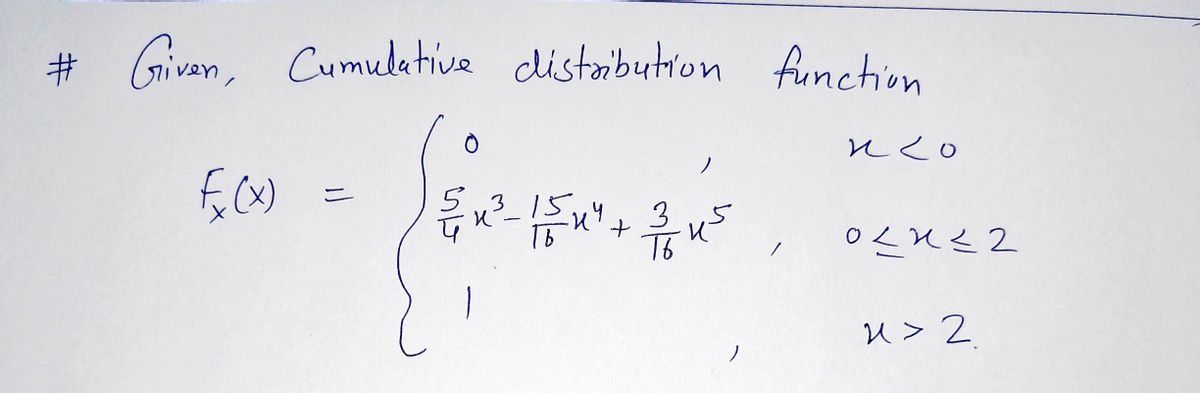 # Given, Cumulative distribution function
0 , x < 0
Fₓ(x) = { 5/4 x³ - 15/16 x⁴ + 3/16 x⁵ , 0 ≤ x ≤ 2
1 , x > 2.